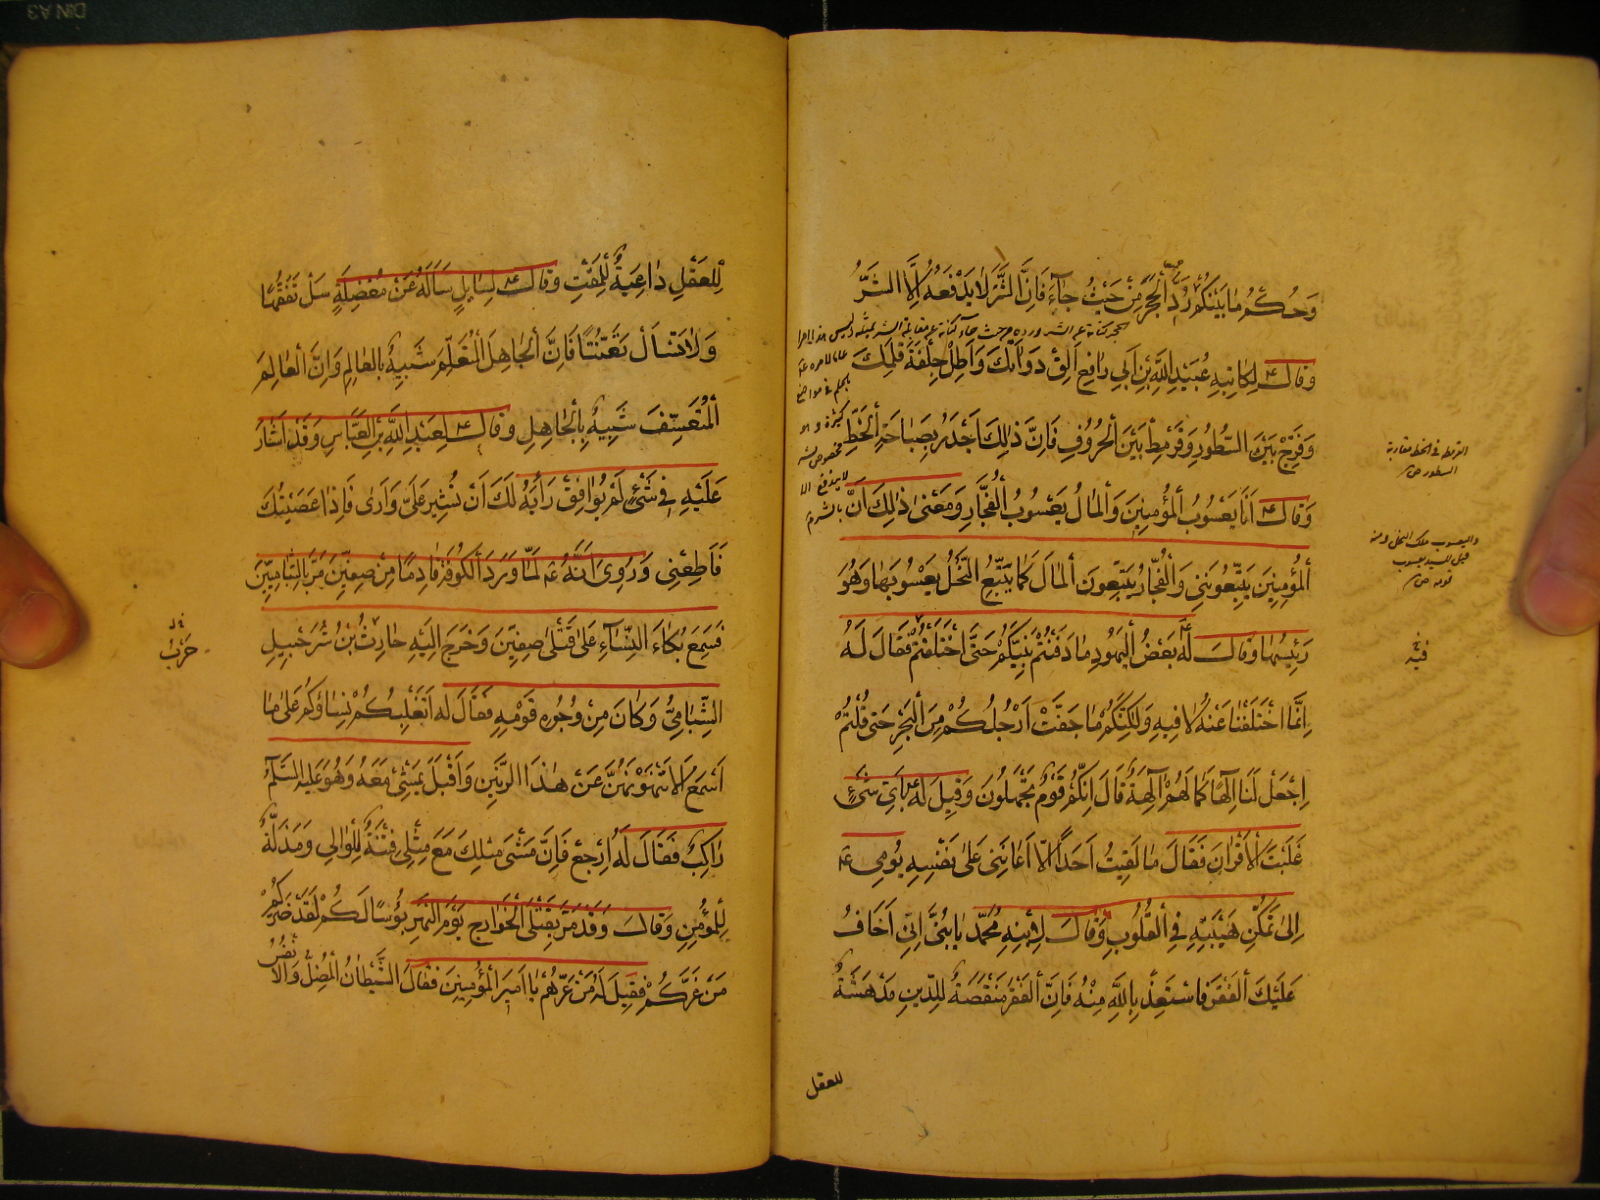 وَحُكْمُ مٰا بَيْنَكُمْ رُدُّ الْحَجَرَ مِنْ حَيْثُ جٰاءَ فَاِنَّ الشَّرَّ لاٰ يَدْفَعُهُ اِلَّا الشَّرُّ
وَقٰالَ ع لِكٰاتِبِهِ عُبَيْدِ اللّٰهِ بْنِ اَبِي رٰافِعٍ اَلِقْ دَوٰاتَكَ وَاَطِلْ جِلْفَةَ قَلَمِكَ
وَفَرِّجْ بَيْنَ السُّطُورِ وَقَرْمِطْ بَيْنَ الْحُرُوفِ فَاِنَّ ذٰلِكَ اَجْدَرُ بِصَبٰاحَةِ الْخَطِّ
وَقٰالَ ع اَنَا يَعْسُوبُ الْمُؤْمِنِينَ وَالْمٰالُ يَعْسُوبُ الْفُجّٰارِ وَمَعْنٰى ذٰلِكَ اَنَّ
الْمُؤْمِنِينَ يَتَّبِعُونَنِي وَالْفُجّٰارُ يَتَّبِعُونَ الْمٰالَ كَمٰا يَتَّبِعُ النَّحْلُ يَعْسُوبَهٰا وَهُوَ
رَئِيسُهٰا وَقٰالَ لَهُ بَعْضُ الْيَهُودِ مٰا دَفَنْتُمْ نَبِيَّكُمْ حَتَّى اخْتَلَفْتُمْ فَقٰالَ لَهُ
اِنَّمَا اخْتَلَفْنٰا عَنْهُ لاٰ فِيهِ وَلٰكِنَّكُمْ مٰا جَفَّتْ اَرْجُلُكُمْ مِنَ الْبَحْرِ حَتّٰى قُلْتُمْ
اِجْعَلْ لَنٰا اِلٰهًا كَمٰا لَهُمْ اٰلِهَةٌ قٰالَ اِنَّكُمْ قَوْمٌ تَجْهَلُونَ وَقِيلَ لَهُ ع بِاَيِّ شَيْءٍ
غَلَبْتَ الْاَقْرٰانَ فَقٰالَ مٰا لَقِيتُ اَحَدًا اِلّٰا اَعٰانَنِي عَلٰى نَفْسِهِ يُومِي ع
اِلٰى تَمَكُّنِ هَيْبَتِهِ فِي الْقُلُوبِ وَقٰالَ لِابْنِهِ مُحَمَّدٍ يٰا بُنَيَّ اِنِّي اَخٰافُ
عَلَيْكَ الْفَقْرَ فَاسْتَعِذْ بِاللّٰهِ مِنْهُ فَاِنَّ الْفَقْرَ مَنْقَصَةٌ لِلدِّينِ مَدْهَشَةٌ
للعقل
القرمطة في الخط مقاربة
السطور ص
واليعسوب ملك النحل ومنه
قيل للسيد يعسوب
قومه ص
لِلْعَقْلِ دٰاعِيَةٌ لِلْمَقْتِ وَقٰالَ ع لِسٰائِلٍ سَاَلَهُ عَنْ مُعْضِلَةٍ سَلْ تَفَقُّهًا
وَلاٰ تَسْاَلْ تَعَنُّتًا فَاِنَّ الْجٰاهِلَ الْمُتَعَلِّمَ شَبِيهٌ بِالْعٰالِمِ وَاِنَّ الْعٰالِمَ
الْمُتَعَسِّفَ شَبِيهٌ بِالْجٰاهِلِ وَقٰالَ ع لِعَبْدِ اللّٰهِ بْنِ الْعَبّٰاسِ وَقَدْ اَشٰارَ
عَلَيْهِ فِي شَيْءٍ لَمْ يُوٰافِقْ رَأْيَهُ لَكَ اَنْ تُشِيرَ عَلَيَّ وَاَرٰى فَاِذٰا عَصَيْتُكَ
فَاَطِعْنِي وَرُوِيَ اَنَّهُ ع لَمّٰا وَرَدَ الْكُوفَةَ قٰادِمًا مِنْ صِفِّينَ مَرَّ بِالشِّبٰامِيِّينَ
فَسَمِعَ بُكٰاءَ النِّسٰاءِ عَلٰى قَتْلٰى صِفِّينَ وَخَرَجَ اِلَيْهِ حٰارِثُ بْنُ شُرَحْبِيلٍ
الشِّبٰامِيُّ وَكٰانَ مِنْ وُجُوهِ قَوْمِهِ فَقٰالَ لَهُ اَتَغْلِبُكُمْ نِسٰاؤُكُمْ عَلٰى مٰا
اَسْمَعُ اَلاٰ تَنْهَوْنَهُنَّ عَنْ هٰذَا الرَّنِينِ وَاَقْبَلَ يَمْشِي مَعَهُ وَهُوَ عَلَيْهِ السَّلَامُ
رٰاكِبٌ فَقٰالَ لَهُ اِرْجِعْ فَاِنَّ مَشْيَ مِثْلِكَ مَعَ مِثْلِي فِتْنَةٌ لِلْوٰالِي وَمَذَلَّةٌ
لِلْمُؤْمِنِ وَقٰالَ وَقَدْ مَرَّ بِقَتْلَى الْخَوٰارِجِ يَوْمَ النَّهْرِ بُؤْسًا لَكُمْ لَقَدْ ضَرَّكُمْ
مَنْ غَرَّكُمْ فَقِيلَ لَهُ مَنْ غَرَّهُمْ يٰا اَمِيرَ الْمُؤْمِنِينَ فَقٰالَ الشَّيْطٰانُ الْمُضِلُّ وَالْاَنْفُسُ
حَرْبُ